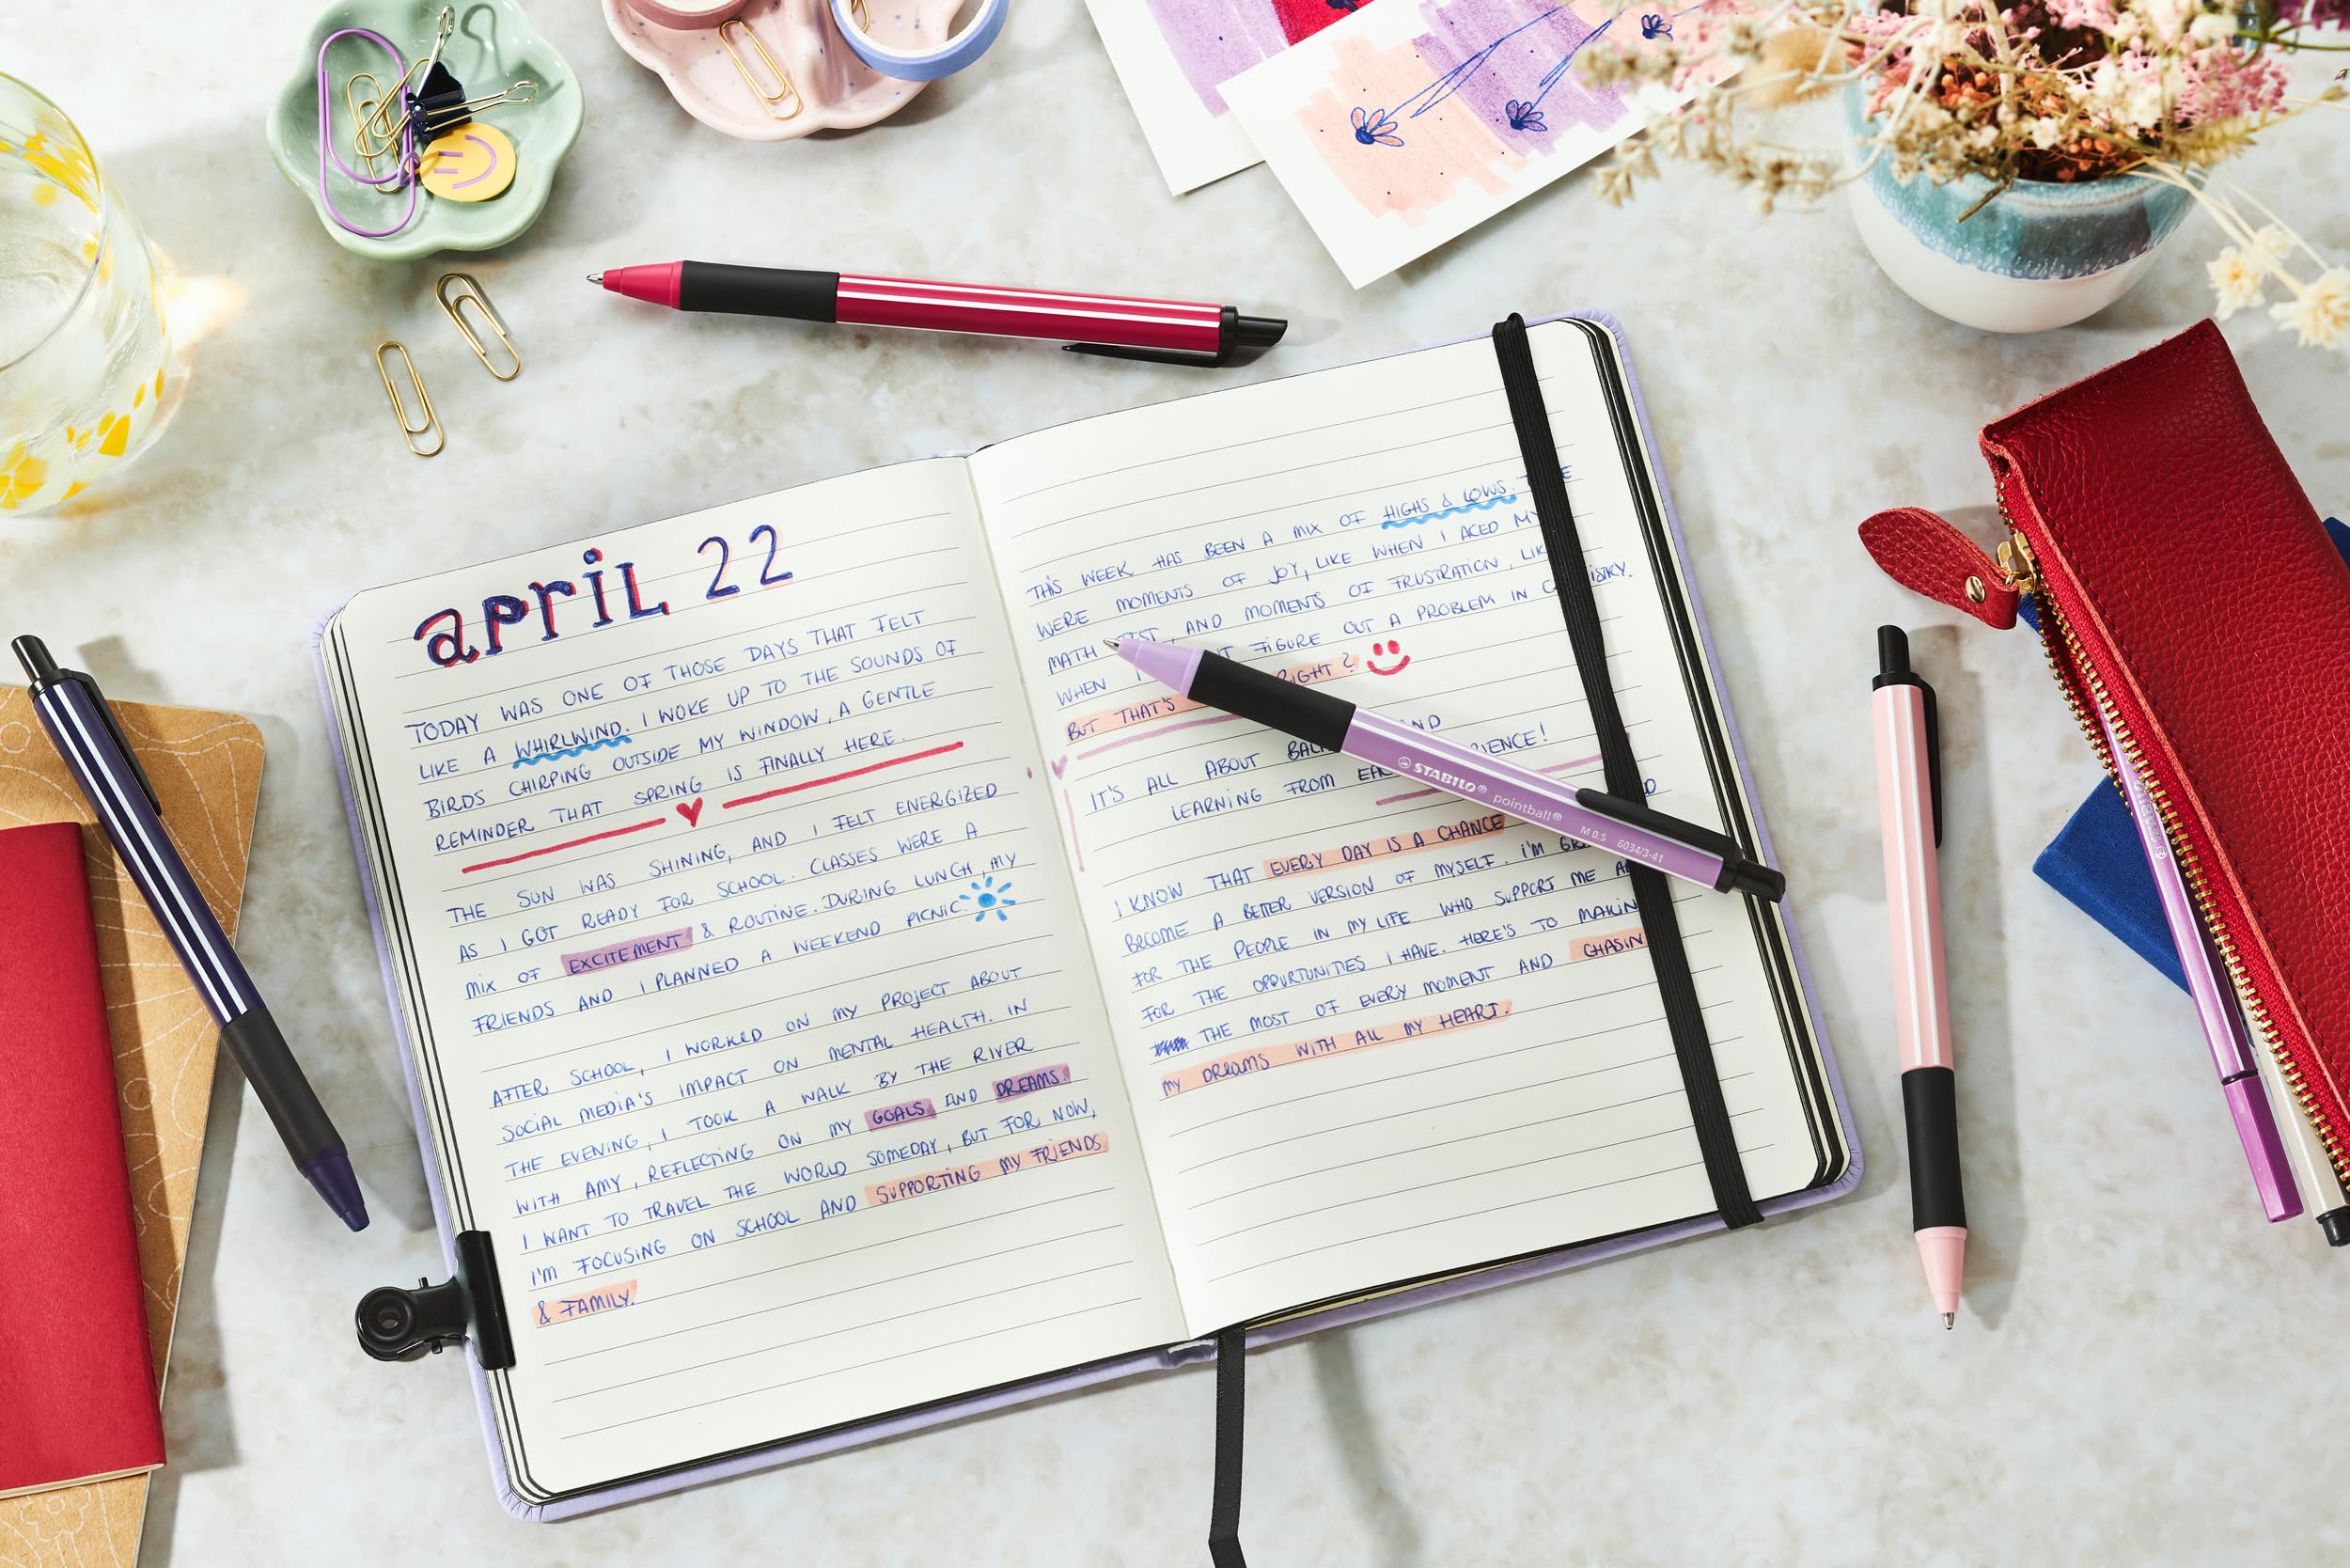 april 22
TODAY WAS ONE OF THOSE DAYS THAT FELT
LIKE A WHIRLWIND. I WOKE UP TO THE SOUNDS OF
BIRDS CHIRPING OUTSIDE MY WINDOW, A GENTLE
REMINDER THAT SPRING IS FINALLY HERE.
THE SUN WAS SHINING, AND I FELT ENERGIZED
AS I GOT READY FOR SCHOOL. CLASSES WERE A
MIX OF EXCITEMENT & ROUTINE. DURING LUNCH, MY
FRIENDS AND I PLANNED A WEEKEND PICNIC.
AFTER SCHOOL, I WORKED ON MY PROJECT ABOUT
SOCIAL MEDIA'S IMPACT ON MENTAL HEALTH. IN
THE EVENING, I TOOK A WALK BY THE RIVER
WITH AMY, REFLECTING ON MY GOALS AND DREAMS.
I WANT TO TRAVEL THE WORLD SOMEDAY, BUT FOR NOW,
I'M FOCUSING ON SCHOOL AND SUPPORTING MY FRIENDS
& FAMILY.
THIS WEEK HAS BEEN A MIX OF HIGHS & LOWS.
WERE MOMENTS OF JOY, LIKE WHEN I ACED MY
MATH AND MOMENTS OF FRUSTRATION,
WHEN FIGURE OUT A PROBLEM IN
BUT THAT'S RIGHT?
IT'S ALL ABOUT
LEARNING FROM
I KNOW THAT EVERY DAY IS A CHANCE
BECOME A BETTER VERSION OF MYSELF. I'M
FOR THE PEOPLE IN MY LIFE WHO SUPPORT ME
FOR THE OPPURTUNITIES I HAVE. HERE'S TO
THE MOST OF EVERY MOMENT AND
MY DREAMS WITH ALL MY HEART.
STABILO® pointball® M 0.5 6034/3-41